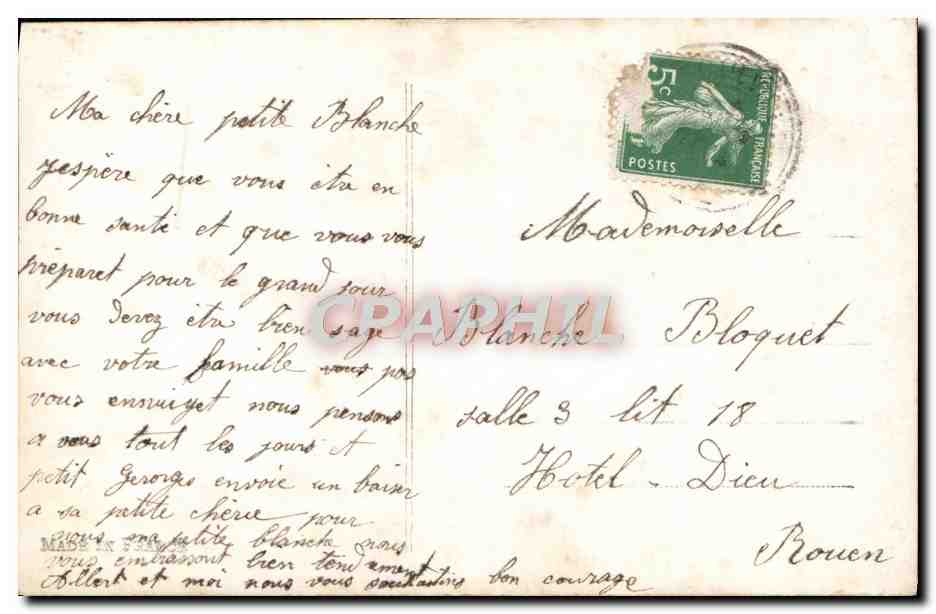 Ma chère petite Blanche
Jespère que vous être en
bonne santé et que vous vous
préparet pour le grand jour
vous devez être bien sage
avec votre famille vous pas
vous ennuiyet nous pensons
a vous tout les jours et
petit Georges envoie un baiser
a sa petite chérie pour
vous ma petite blanche nous
vous embrassont bien tendement
Albert et moi nous vous souhaitins bon courage
MADE IN FRANCE
5c
REPUBLIQUE FRANÇAISE
POSTES
Mademoiselle
Blanche Bloquet
salle 3 lit 18
Hotel - Dieu
Rouen
CPAPHIL